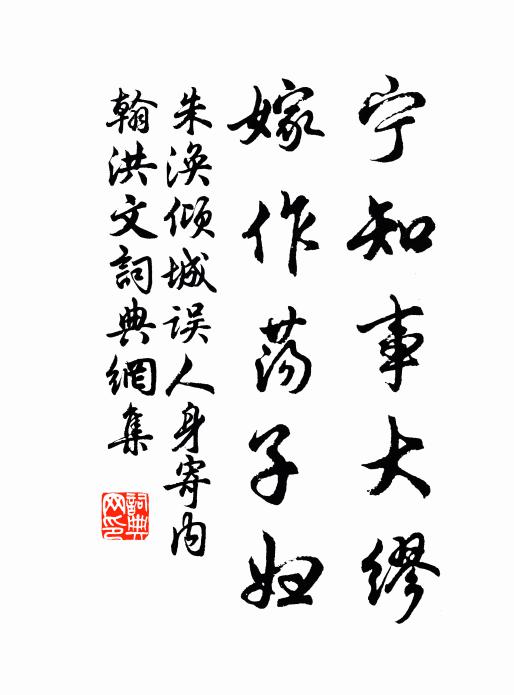 宁知事大缪
嫁作荡子妇
朱涣倾城误人身寄内
翰洪文詞典網集
詞典网印